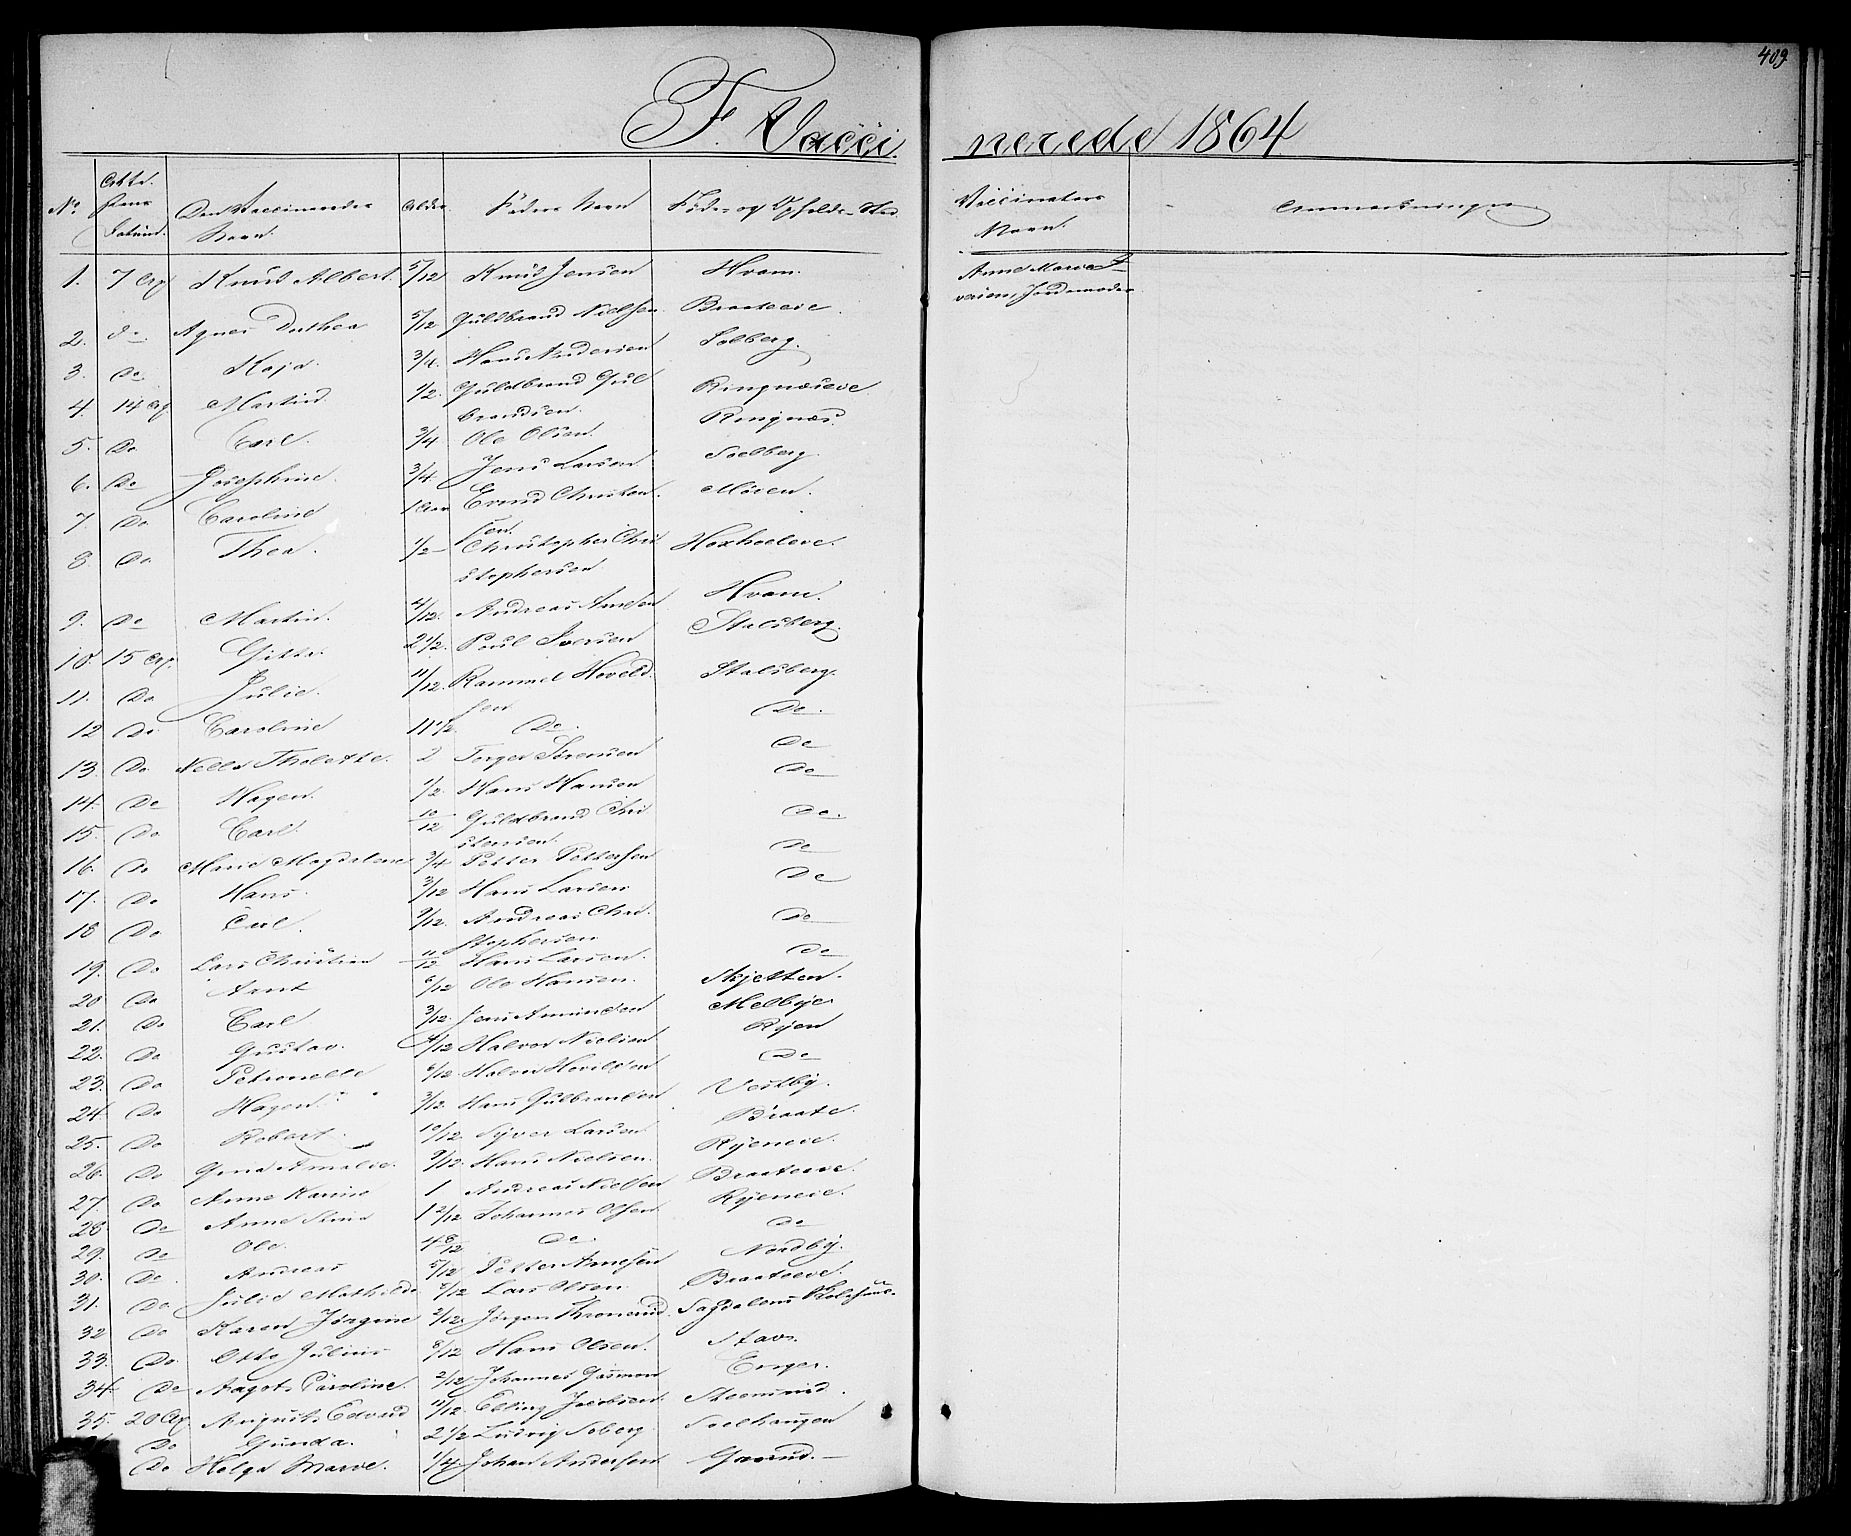 409
F. Vacci nerede 1864
No. Den Vaccineredes Navn. Alder Faders Navn Føde- og Opholds-Sted. Vaccinators Navn. Anmærkninger
1. 7 Apr Knud Albert. 5/12 Knud Jensen Hvam. Anne Marie Jordemoder
2. do Agnes Duthea 5/12 Guldbrand Nielsen Brateeie.
3. Do Kaja. 3/4. Hans Andersen Solberg.
4. 14 Apr Martin. 1/2. Guldbrand Gul Ringnæseie
brandsen.
5. Do Carl. 3/4 Ole Olsen. Ringnæs.
6. Do Josephine. 3/4 Jens Larsen Soelberg.
7. Do Caroline 1 Aar Evend Christen Moien.
sen.
8 Do Thea. 1/2 Christopher Chri
stophersen
9. Do Martin. 4/12. Andreas Arnesen Hvam.
10. 15 Apr. Gitte. 2 1/2. Poul Iversen Stalsberg.
11. Do Julie. 11/12. Rammel Hoveld Stalsberg.
sen
12 Do Caroline 11 1/2. Do. Do.
13. Do. Nelle Tholette. 2 Torger Sørensen Do
14. Do Hagen. 1/2. Hans Hansen Do
15. Do Carl. 10/12 Guldbrand Chri Do.
stensen.
16. Do Marie Magdalene 3/4 Petter Pettersen Do
17. Do Hans. 3/12 Hans Larsen Do
18 Do Carl. 9/12. Andreas Chri. Do
stophersen
19. Do Lars Christian 11/12 Hans Larsen. Do
20 Do Arnt 6/12 Ole Hansen. Skjetten.
21. Do Carl 3/12. Jens Amundsen Melbye
22. Do Gustav. 4/12 Halvor Nielsen Ryen
23. Do Petronelle 6/12. Halvor Hovelsen Do
24. Do Hagen. 3/12. Hans Gulbrandsen Vestby.
25. Do Robert. 10/12 Syver Larsen Braate.
26. Do Amalie. 9/12. Hans Nielsen. Ryeneie.
27. Do Anne Karine 1 Andreas Nielsen Braateeie.
28 Do Anne Stine 1 2/12 Johannes Olsen Ryeneie.
29. Do Ole. 4 8/12 Do. Do
30. Do. Andreas 5/12 Petter Arnesen Nordby.
31. Do Julie Mathilde 5/12 Lars Olsen. Braateeie.
32 Do Karen Jørgine 2/12. Jørgen Thronerud. Sagdalens
33. Do. Otto Julius 8/12 Hans Olsen. Stav.
34. Do Aagot Caroline. 2/12 Johannes Enger.
35. 20 Apr. August Edvard Elling Jacobsen
Do Gunda. 2 1/2 Ludvig Soberg. Soelhaugen
Do Helga Marie. 1/4 Johan Andersen